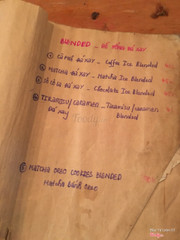 BLENDED _ ĐÁ XAY
Cà phê đá xay _ Coffee Ice Blended
Matcha đá xay _ Matcha Ice Blended
Sô cô la đá xay _ Chocolate Ice Blended
Tiramisu/caramen _ Tiramisu/caramen
đá xay Blended
Foody
MATCHA OREO COOKIES BLENDED
Matcha bánh oreo